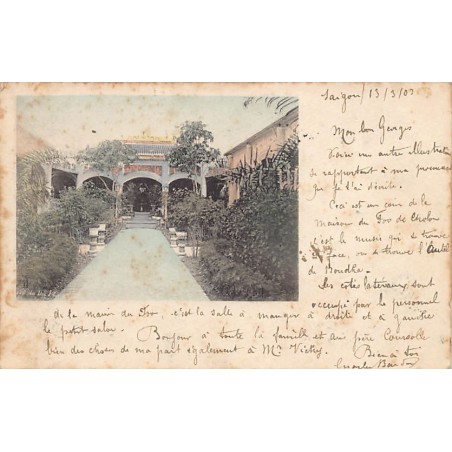 Saigon, 13/3/03
Mon bon Georges
Voici un autre illustratif
se rapportant à ma promenade
que je t'ai décrite.
Ceci est un coin de la
maison du Foo de Cholon
c'est le musée qui se trouve
face, où se trouve l'Autel
de Boudha.
Les côtés latéraux sont
occupés par le personnel
de la maison du Foo. c'est la salle à manger à droite et à gauche
le petit salon. Bonjour à toute la famille et au père
bien des choses de ma part également à Mr Vichy. Bien à toi
Charles